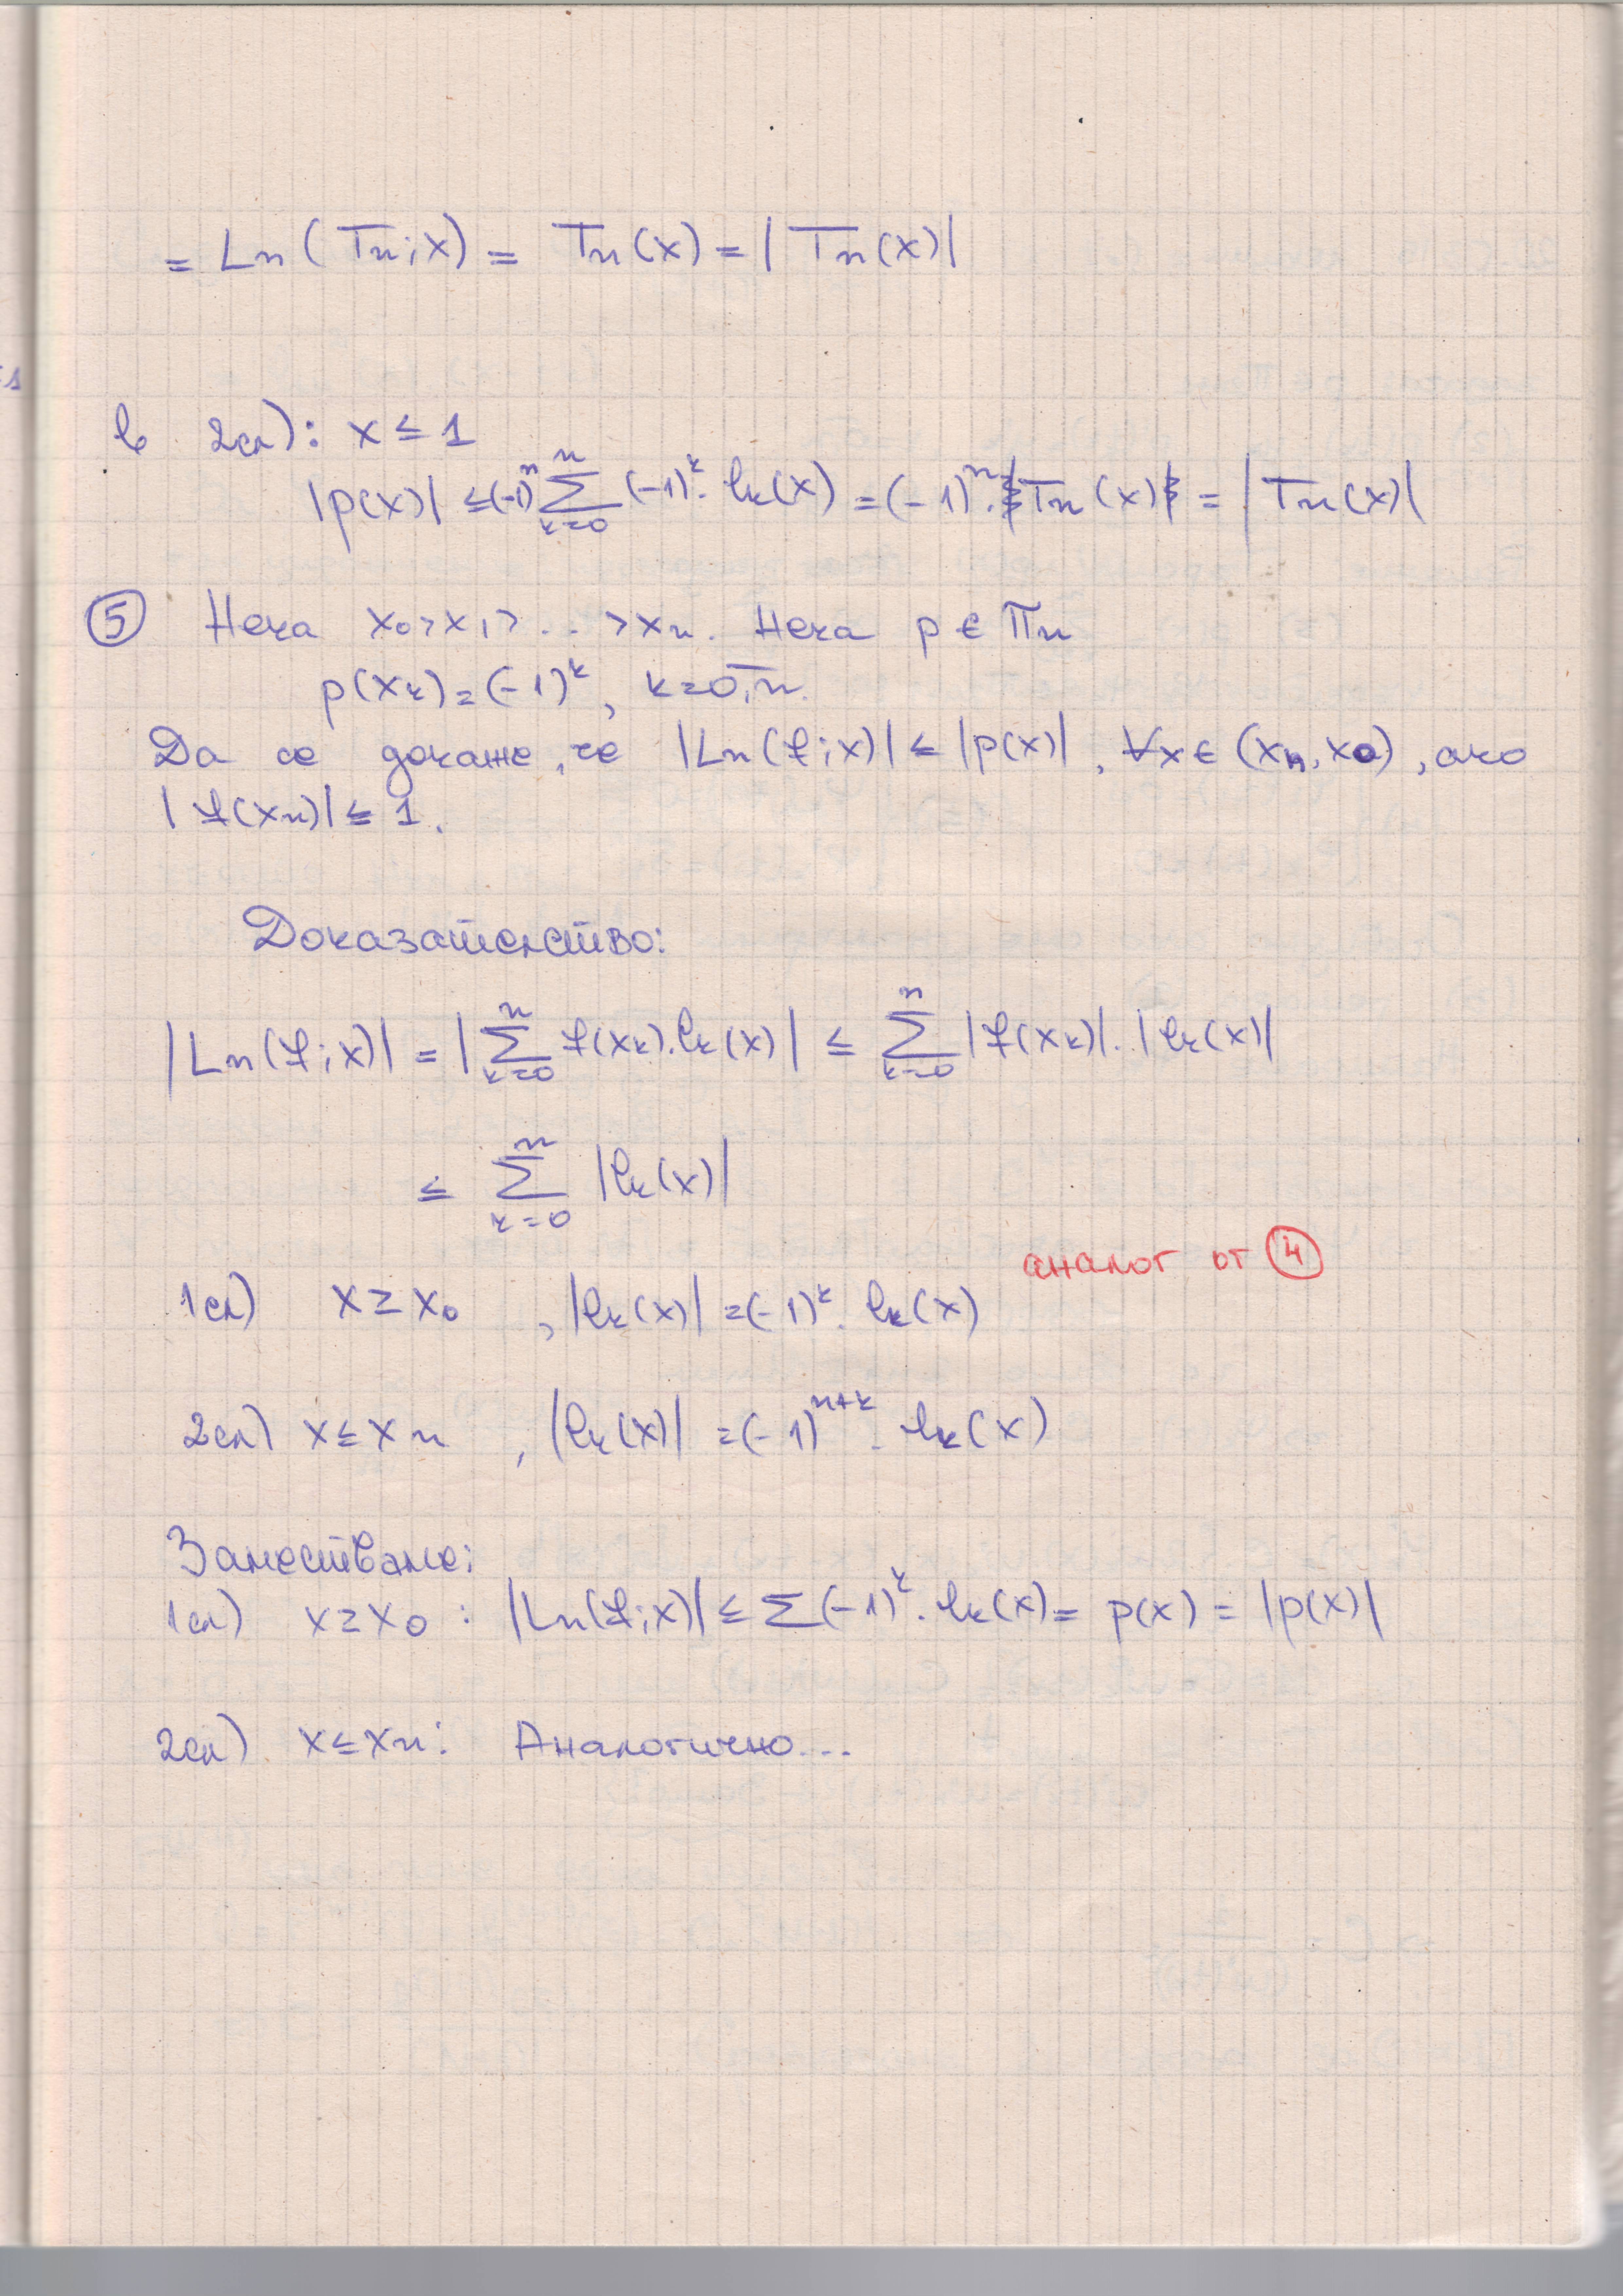 = Ln(Tn;x) = Tn(x) = |Tn(x)|
В 2сл): x ≤ 1
|p(x)| ≤ (-1)^n ∑_{k=0}^{n} (-1)^k . lk(x) = (-1)^n . Tn(x) = |Tn(x)|
⑤ Нека x0 > x1 > .. > xn. Нека p ∈ πn
p(xk) = (-1)^k, k=0,n.
Да се докаже, че |Ln(f;x)| ≤ |p(x)|, ∀x ∈ (xn, x0), ако
|f(xn)| ≤ 1.
Доказателство:
|Ln(f;x)| = |∑_{k=0}^{n} f(xk).lk(x)| ≤ ∑_{k=0}^{n} |f(xk)|.|lk(x)|
≤ ∑_{k=0}^{n} |lk(x)|
аналог от ④
1сл) x ≥ x0, |lk(x)| = (-1)^k . lk(x)
2сл) x ≤ xn, |lk(x)| = (-1)^{n+k} . lk(x)
Заместваме:
1сл) x ≥ x0 : |Ln(f;x)| ≤ ∑(-1)^k . lk(x) = p(x) = |p(x)|
2сл) x ≤ xn: Аналогично...